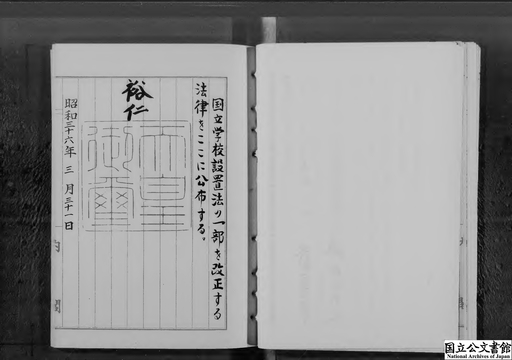 国立学校設置法の一部を改正する
法律をここに公布する。
裕仁
天皇
御璽
昭和三十六年三月三十一日
内閣
国立公文書館
National Archives of Japan